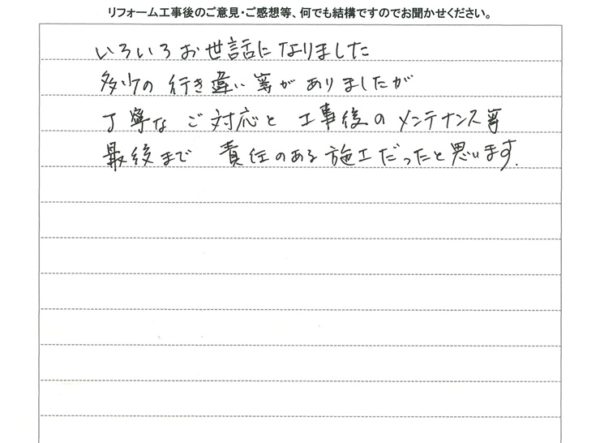 リフォーム工事後のご意見・ご感想等、何でも結構ですのでお聞かせください。
いろいろお世話になりました
多少の行き違い等がありましたが
丁寧なご対応と工事後のメンテナンス等
最後まで責任のある施工だったと思います。